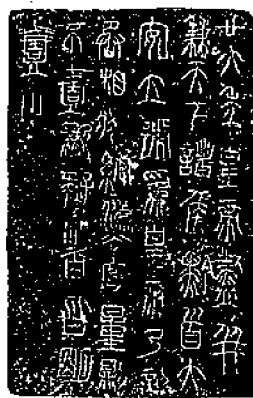 廿六年皇帝盡并
兼天下諸侯黔首大
安立號爲皇帝乃詔
丞相狀綰灋度量則
不壹歉疑者皆明
壹之